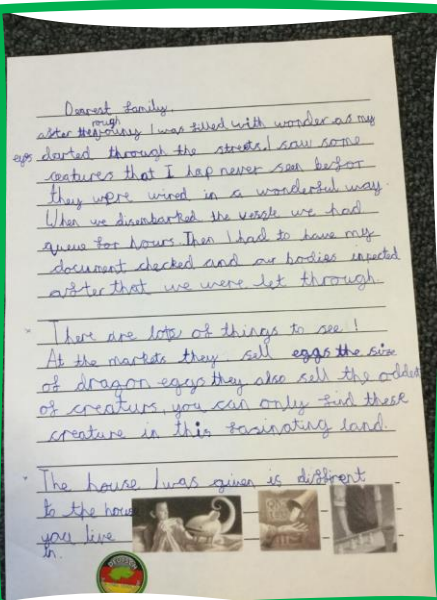 Dearest family.
rough
after the journy I was filled with wonder as my
eyes darted through the streets. I saw some
creatures that I hap never seen befor
they were wired in a wonderful way.
When we disembarked the vessle we had
queue for hours. Then I had to have my
document checked and our bodies inpected
after that we were let through.
There are lots of things to see!
At the markets they sell eggs the size
of dragon eggs they also sell the oddest
of creaturs, you can only find these
creature in this fasinating land.
The house I was given is diffirent
to the house
you live
in.